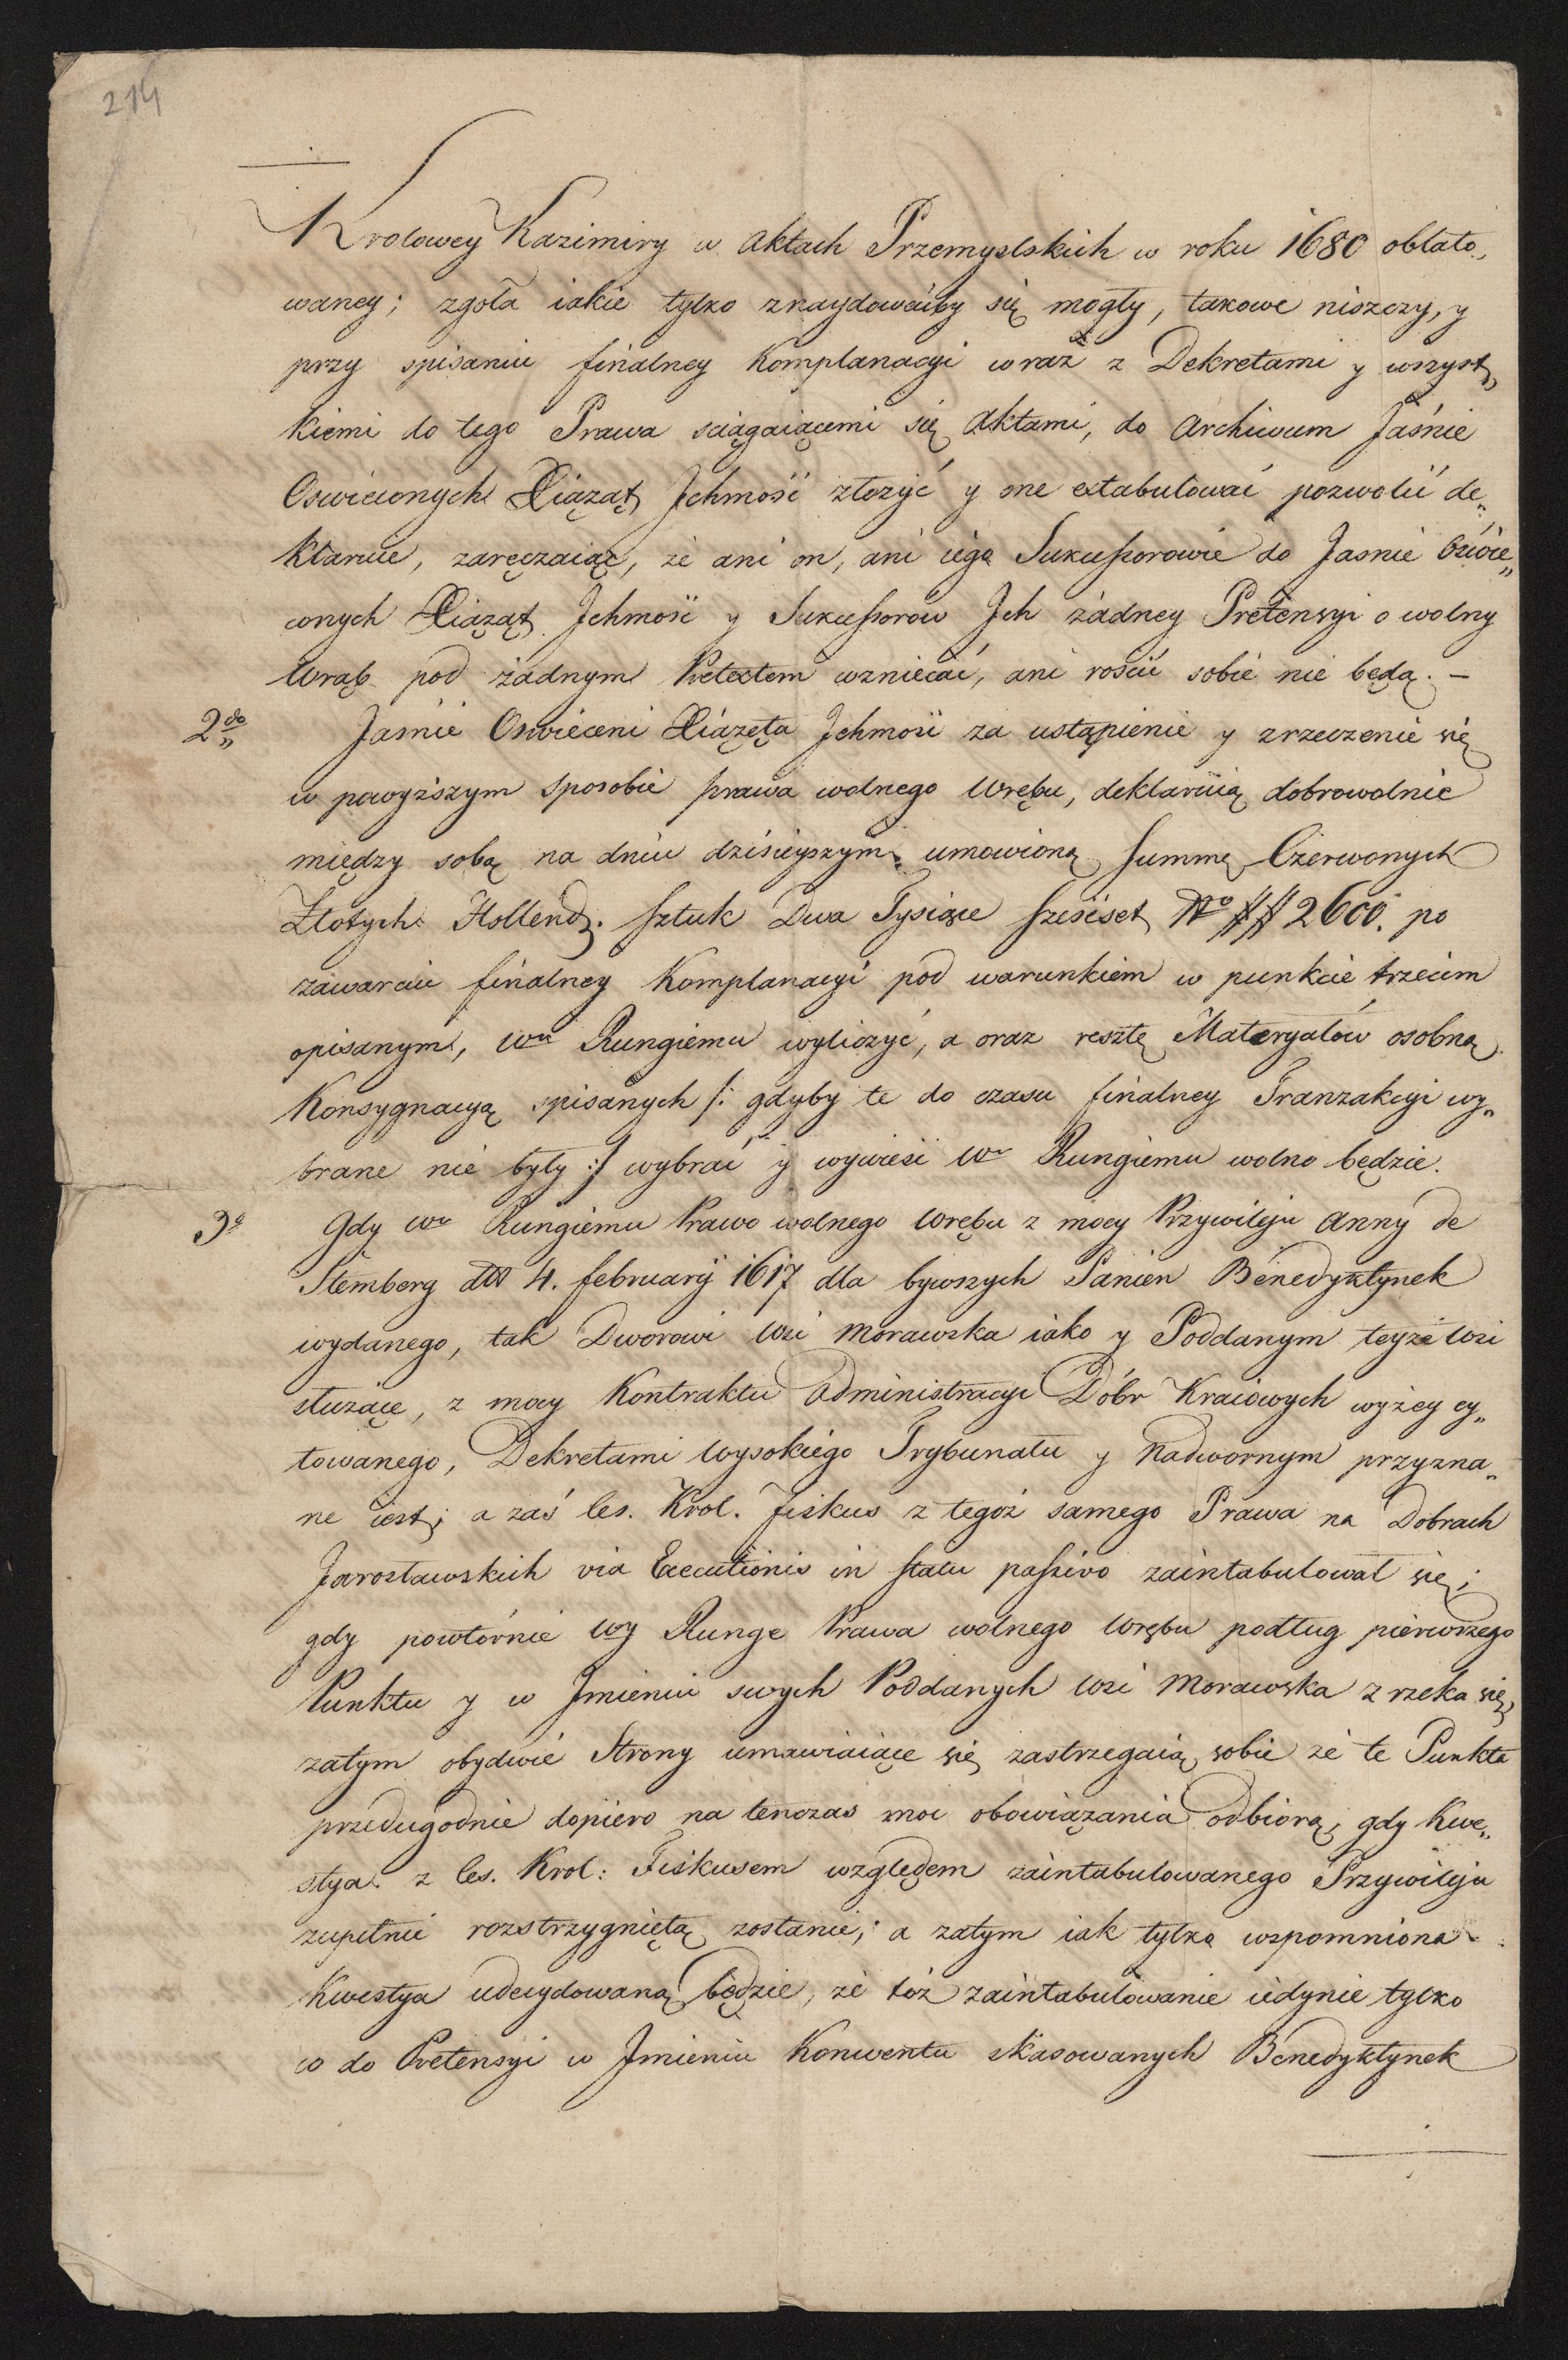 214
Krolowey Kazimiry w Aktach Przemyslskich w roku 1680 oblato„
waney; zgoła iakie tylko znaydowaćby się mogły, takowe niszczy, y
przy spisaniu finalney Komplanacyi wraz z Dekretami y wszyst„
kiemi do tego Prawa sciągaiącemi się Aktami, do Archiwum Jaśnie
Oswieconych Xiążąt Jchmość złożyć y one extabulować pozwolić de„
klaruie, zaręczaiąc, że ani on, ani iego Sukcessorowie do Jasnie Oświe„
conych Xiążąt Jchmość y Sukcessorow Jch żadney Pretensyi o wolny
Wrąb pod żadnym Pretextem wzniecać, ani rościć sobie nie będą. –
2do Jaśnie Oswieceni Xiążęta Jchmość za ustąpienie y zrzeczenie się
w powyższym sposobie prawa wolnego Wrębu, deklaruią dobrowolnie
między sobą na dniu dzisieyszym umowioną Summę Czerwonych
Złotych Hollend. Sztuk Dwa Tysiące Sześćset No ## 2600. po
zawarciu finalney Komplanacyi pod warunkiem w punkcie trzecim
opisanym, Wu Rungiemu wyliczyć, a oraz resztę Materyałów osobną
Konsygnacyą spisanych /: gdyby te do czasu finalney Tranzakcyi wy„
brane nie były :/ wybrać y wywieść Wu Rungiemu wolno będzie.
3o Gdy Wu Rungiemu Prawo wolnego Wrębu z mocy Przywileju Anny de
Stemberg dto 4. february 1617 dla bywszych Panien Benedyktynek
wydanego, tak Dworowi Wsi Morawska iako y Poddanym teyże Wsi
służące, z mocy Kontraktu Administracyi Dóbr Kraiowych wyżey cy„
towanego, Dekretami Wysokiego Trybunału y Nadwornym przyzna„
ne iest; a zaś Ces. Krol. Fiskus z tegoż samego Prawa na Dobrach
Jarosławskich via Executionis in statu passivo zaintabulował się;
gdy powtórnie Wy Runge Prawa wolnego Wrębu podług pierwszego
Punktu y w Jmieniu swych Poddanych Wsi Morawska zrzeka się,
zatym obydwie Strony umawiaiące się zastrzegaią sobie że te Punkta
przedugodnie dopiero na tenczas moc obowiązania odbiorą, gdy Kwe„
stya z Ces. Krol: Fiskusem względem zaintabulowanego Przywileju
zupełnie rozstrzygniętą zostanie; a zatym iak tylko wspomniona
Kwestya udecydowaną będzie, że toż zaintabulowanie iedynie tylko
co do Pretensyi w Jmieniu Konwentu skasowanych Benedyktynek